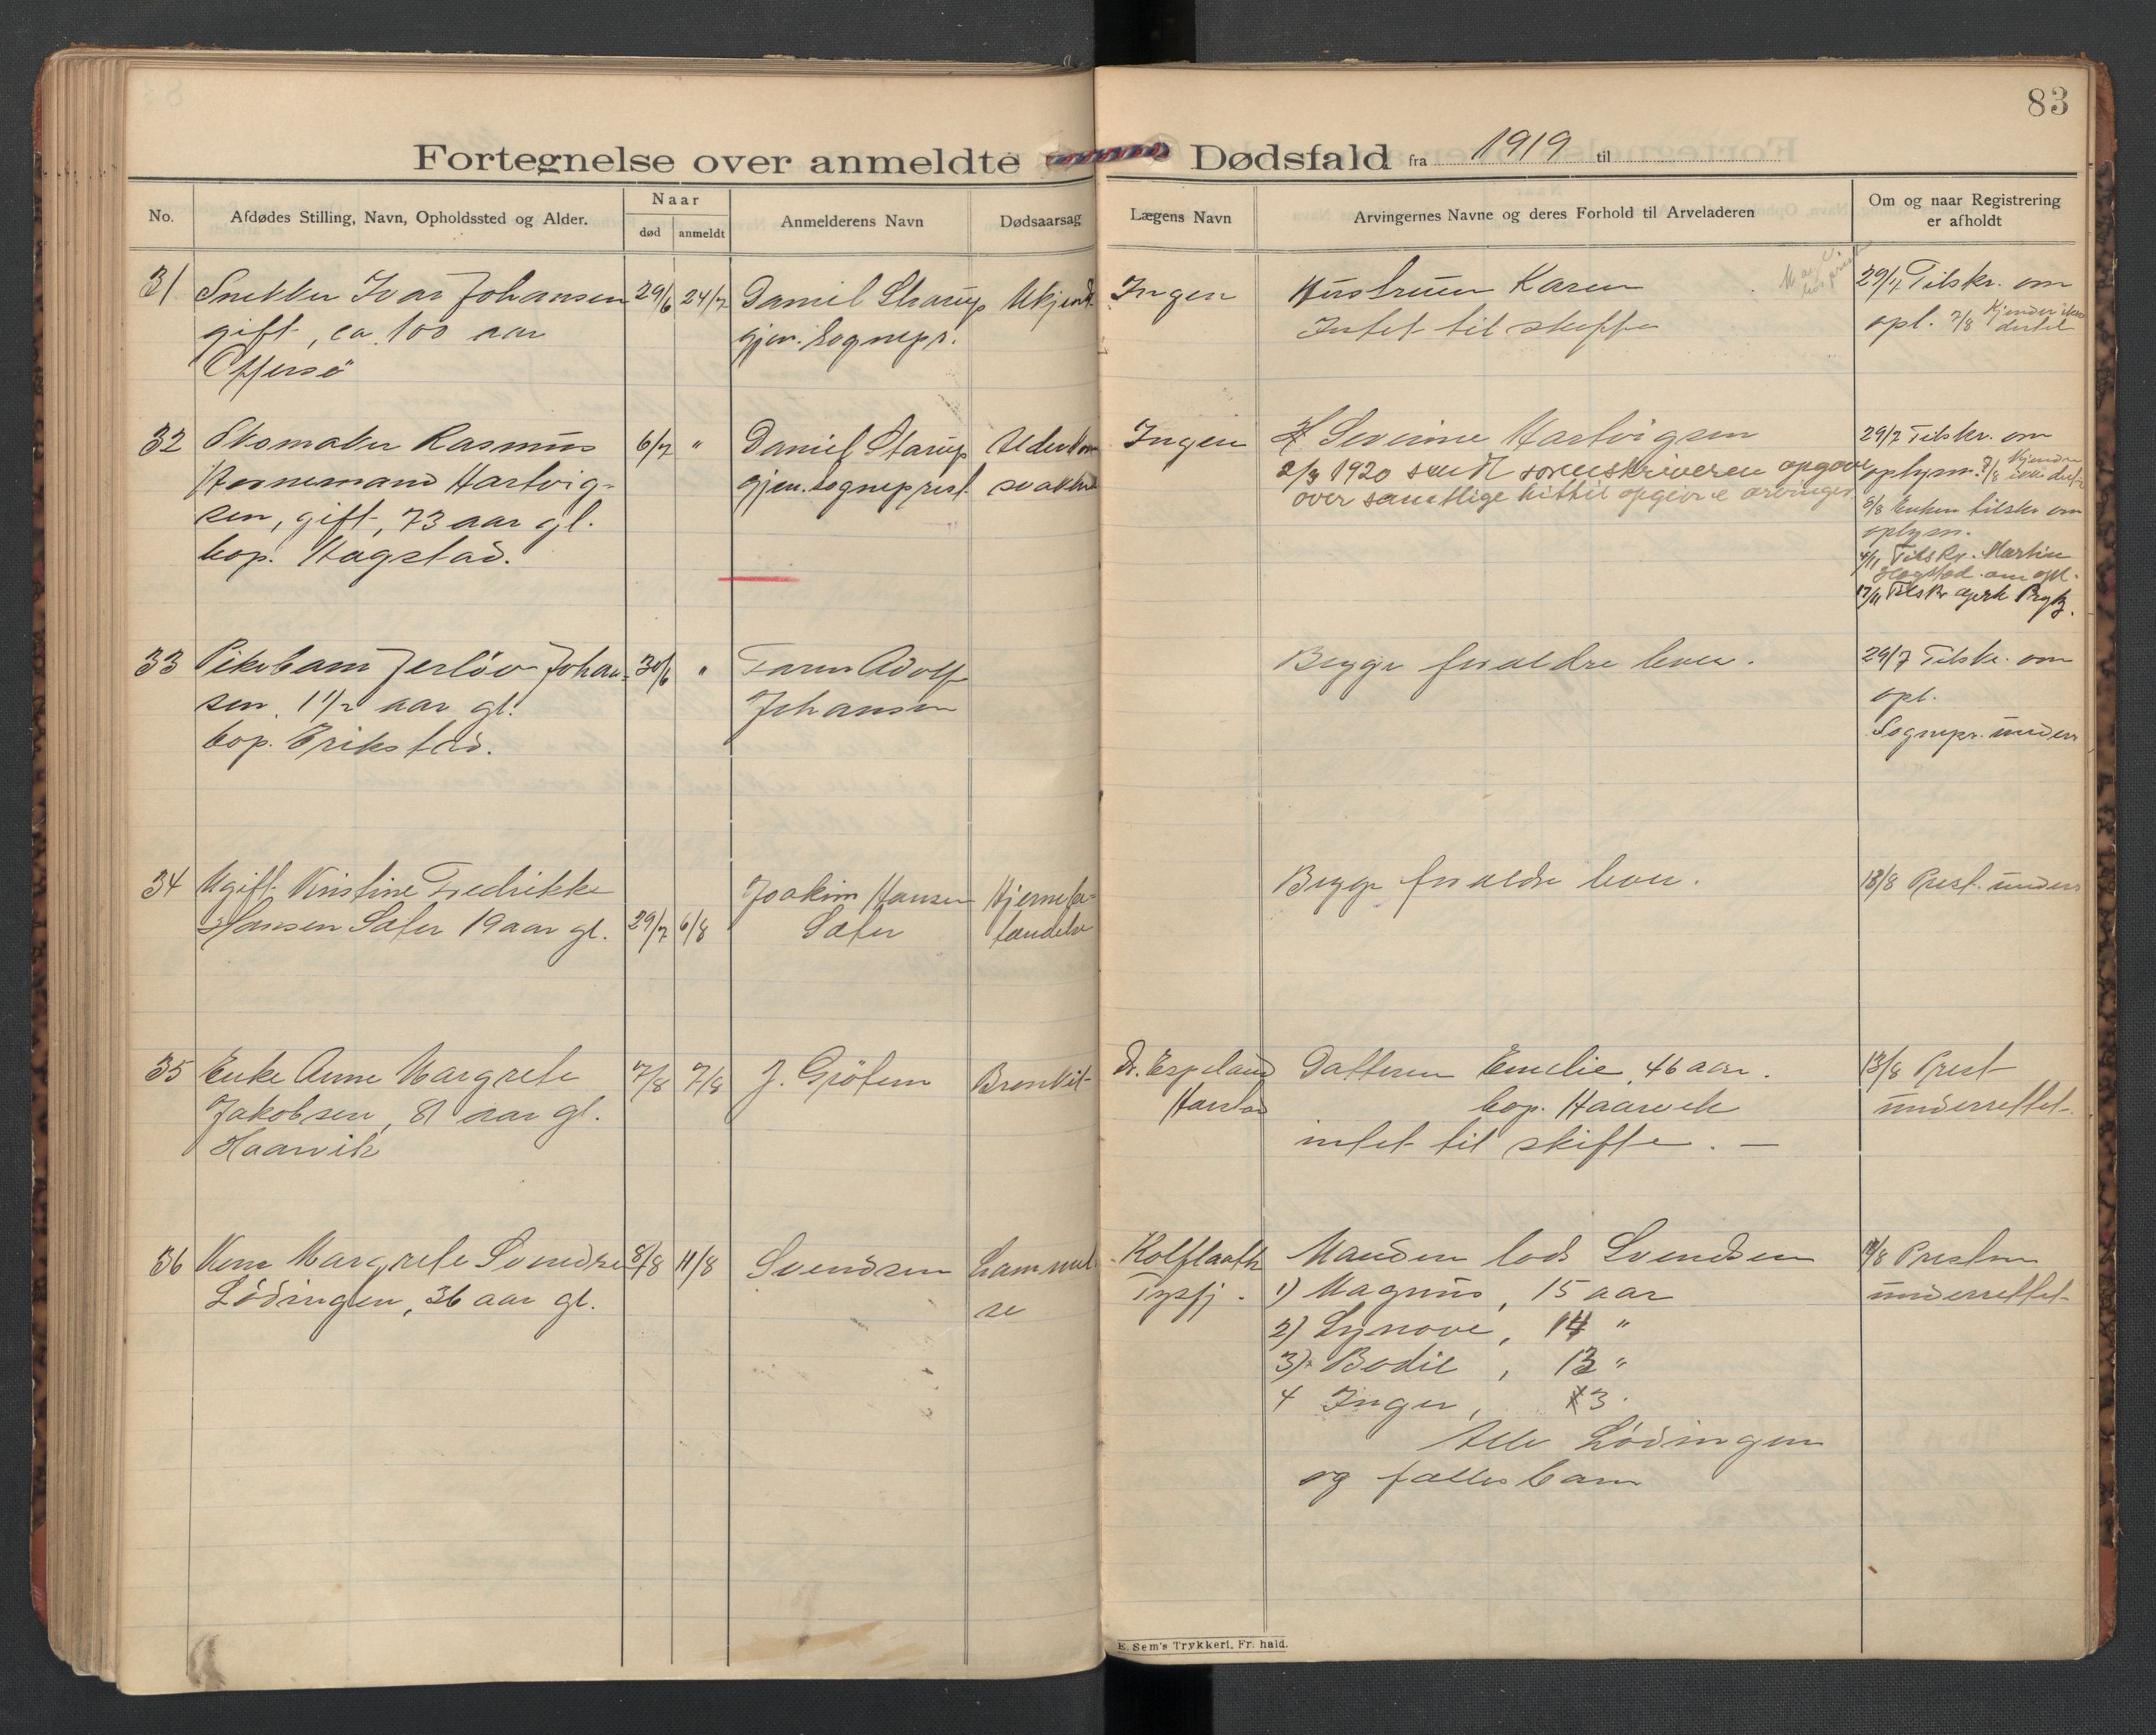 83
Fortegnelse over anmeldte Dødsfald fra 1919 til
No.
Afdødes Stilling, Navn, Opholdssted og Alder.
Naar
død
anmeldt
Anmelderens Navn
Dødsaarsag
Lægens Navn
Arvingernes Navne og deres Forhold til Arveladeren
Om og naar Registrering
er afholdt
31
Snekker Ivar Johansen
gift, ca. 100 aar
Offersö
29/6
24/7
Daniel Starup
gjen. Sognepr.
Ukjendt
Ingen
Hustruen Karen
Intet til skifte
29/7 Tilskr. om
opl. 7/8 Kjender ikke
32
Skomaker Rasmus
Hartvig-
sen, gift, 73 aar gl.
bop. Hagstad.
6/7
"
Daniel Starup
gjen. Sogneprest
Ingen
Severine Hartvigsen
2/3 1920 sendt sorenskriveren opgave
over samtlige hittil opgivne arvinger.
29/7 Tilskr. om
oplysn. 7/8 Kjender
8/8 Enken tilskr. om
oplysn.
4/11 Tilskr. Martin
Hagstad om opl.
17/11 Tilskr
33
Pikebarn Jerløv Johan-
sen, 1 1/2 aar gl.
bop. Erikstad.
30/6
"
Faren Adolf
Johansen
Begge foraldre lever.
29/7 Tilskr. om
opl.
Sognepr. underr
34
Ugift Kristine Fredrikke
Hansen Sæter 19 aar gl.
29/7
6/8
Joakim Hansen
Sæter
Hjernebe-
tændelse
Begge foraldre lever.
13/8 Prest. underr
35
Enke Anne Margrete
Jakobsen, 81 aar gl.
Haarvik
7/8
7/8
J. Grötem
Bronkit
Dr. Espeland
Harstad
Datteren Emelie, 46 aar.
bop. Haarvik
intet til skifte. —
13/8 Prest
underrettet
36
Kone Margrete Svendsen
Lödingen, 36 aar gl.
8/8
11/8
Svendsen
Lammel
se
Kolflaath
Tysfj.
Manden lods Svendsen
1) Magnus, 15 aar
2) Synove, 14 "
3) Bodil, 13 "
4 Inger, 3.
Alle Lödingen
og fælles barn
14/8 Presten
underrettet
E. Sem's Trykkeri, Fr. hald.